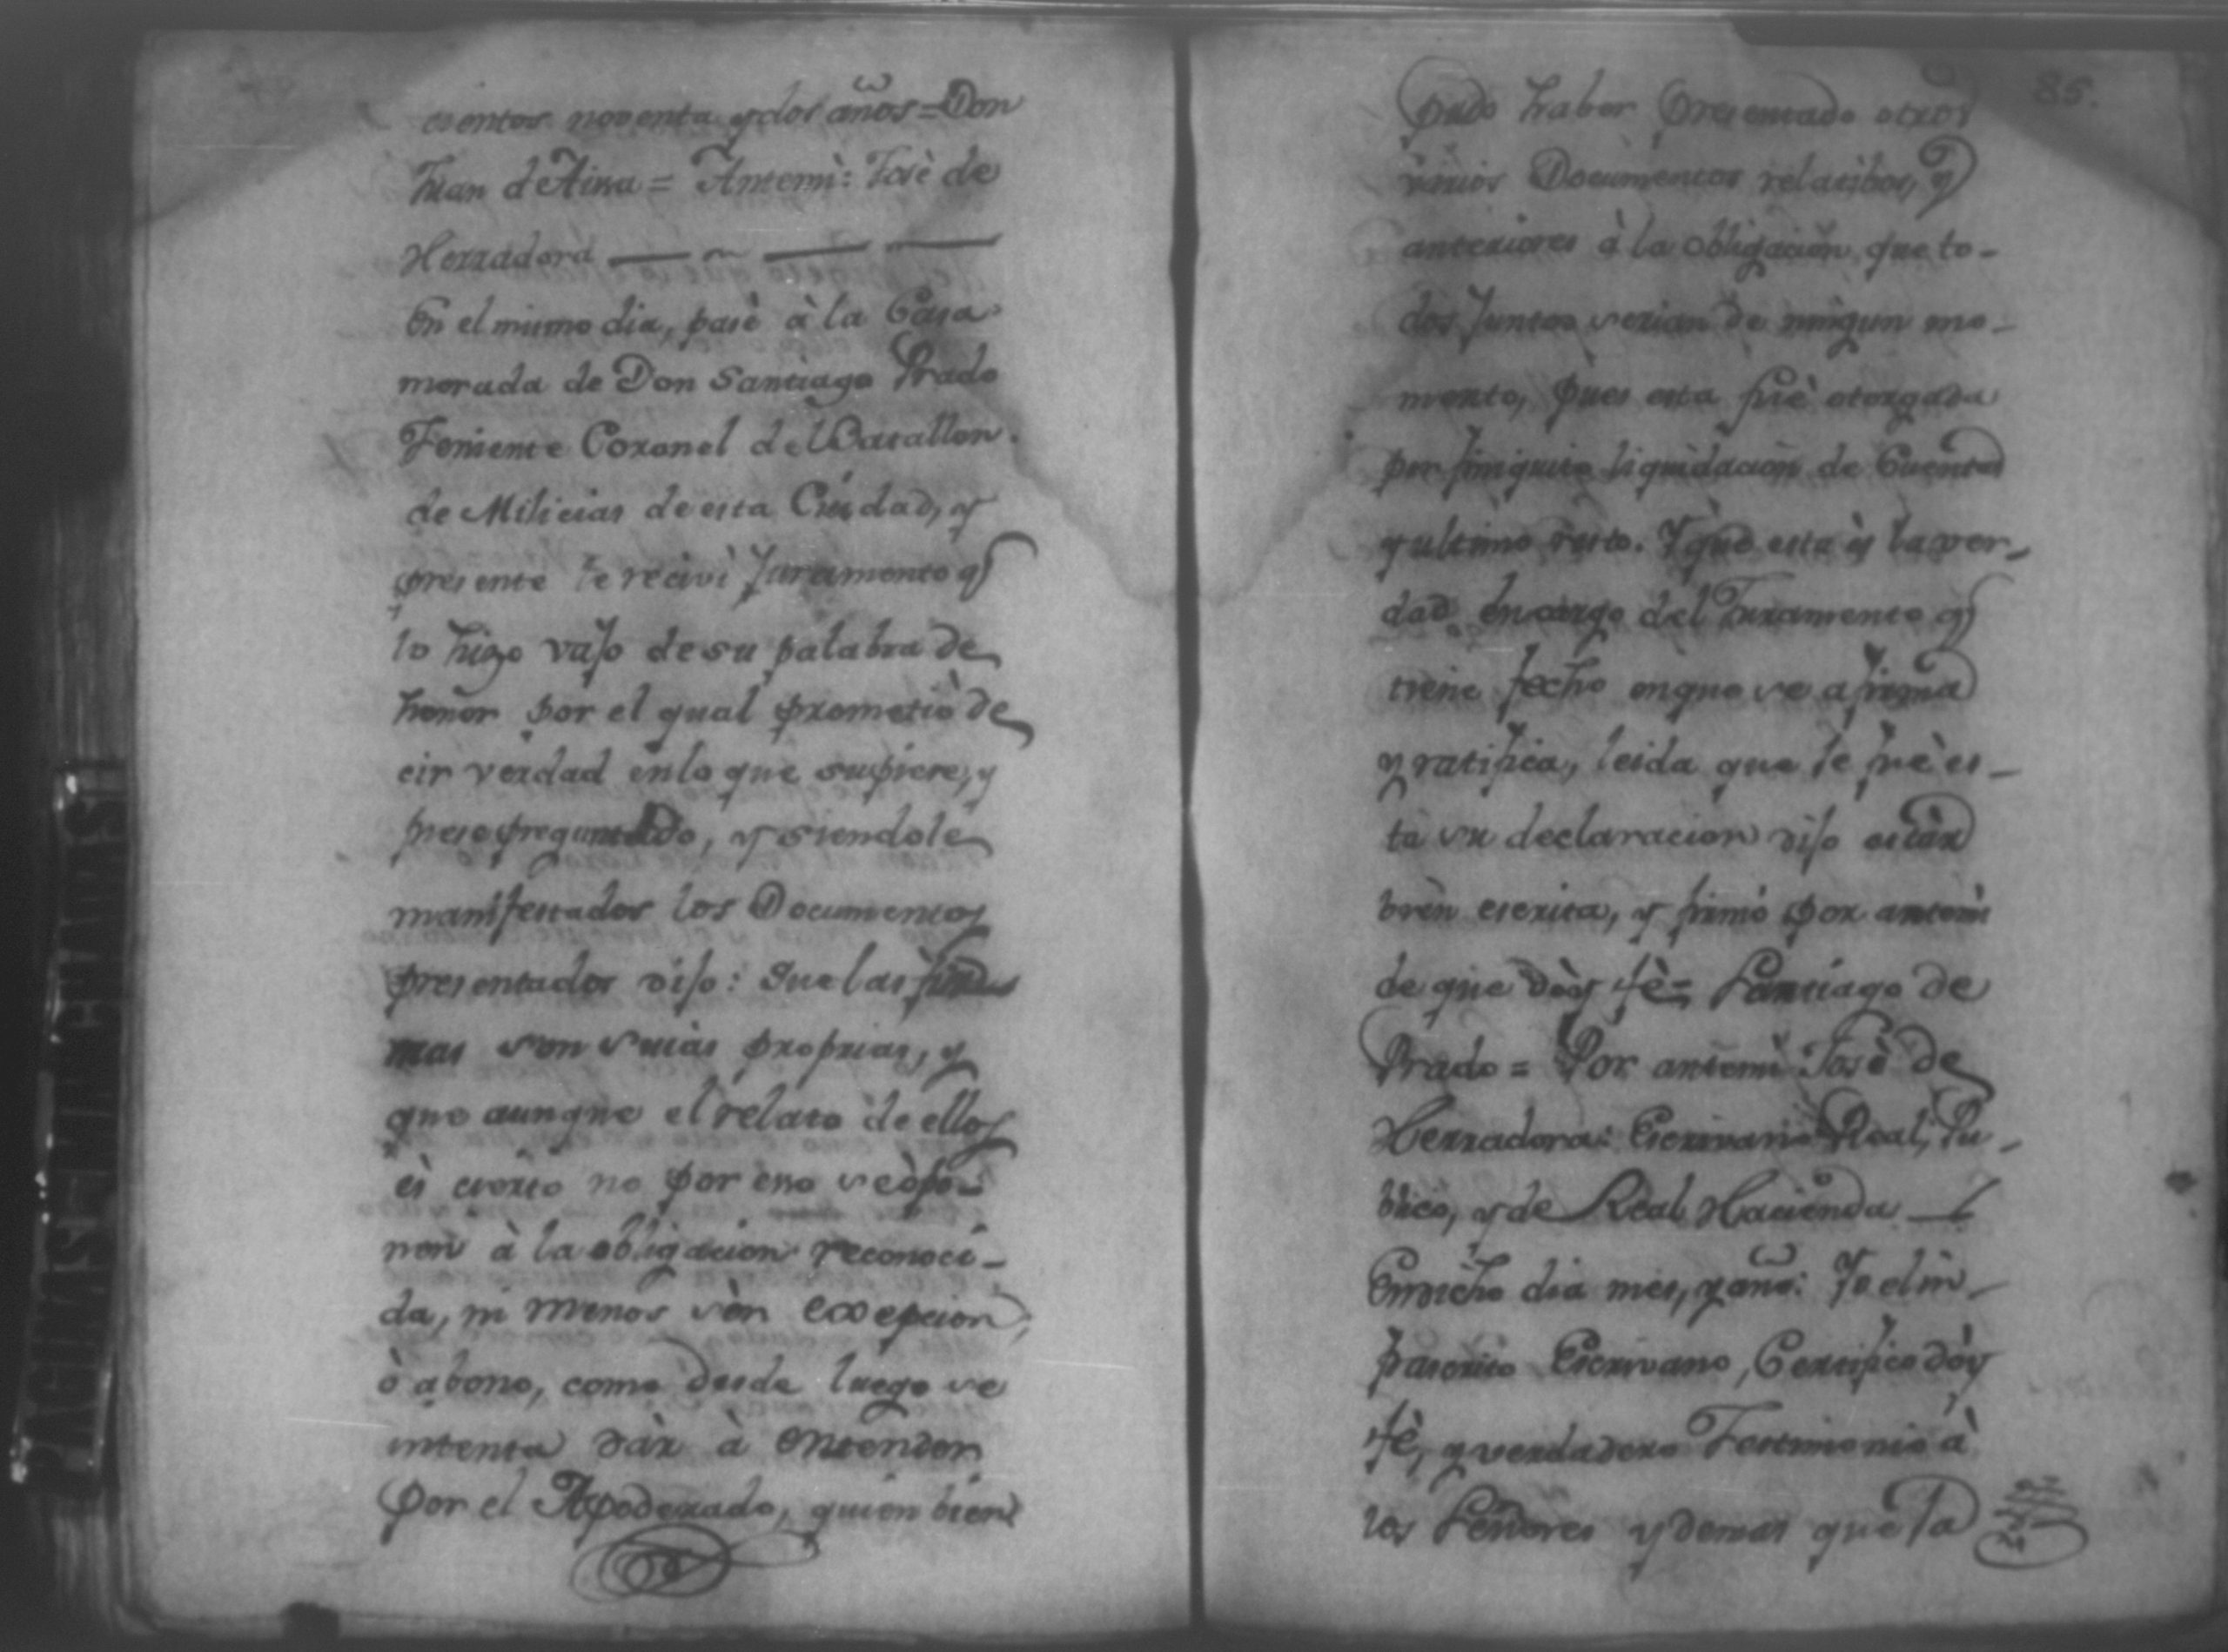 cientos noventa y dos años = Don
Juan de Aissa = Antemì: Josè de
Herradora
En el mismo dia, pasè à la Casa
morada de Don Santiago Prado
Teniente Coronel del Batallon
de Milicias de esta Ciudad, y
presente le recivì Juramento q̃
lo hizo vajo de su palabra de
honor por el qual prometiò de
cir verdad en lo que supiere, y
fuese preguntado, y siendole
manifestados los Documentos
presentados dijo: Que las fir
mas son suias proprias, y
que aunque el relato de ellos
ès cierto no por eso se òpo-
nen à la obligacion reconoci-
da, ni menos sòn excepcion,
ò abono, como desde luego se
intenta dàr à entender
por el Apoderado, quien bien
85.
pudo haber presentado otros
varios Documentos relatibos, y
anteriores à la obligacion que to-
dos juntos serian de ningun mo-
mento, pues esta fuè otorgada
por finiquito liquidacion de Cuentas
y ultimo resto. Y que esta ès la ver-
dad en cargo del Juramento q̃
tiene fecho en que se afirma
y ratifica, leida que le fuè es-
ta su declaracion dijo estàr
bièn escrita, y firmò por antemi
de que dòy fè = Santiago de
Prado = Por antemì Josè de
Herradora: Escrivano Real, Pu-
blico, y de Real Hacienda
En dicho dia mes, y año: Yo el in-
frascrito Escrivano, Certifico dòy
fè, y verdadero Testimonio à
los Señores y demas que la